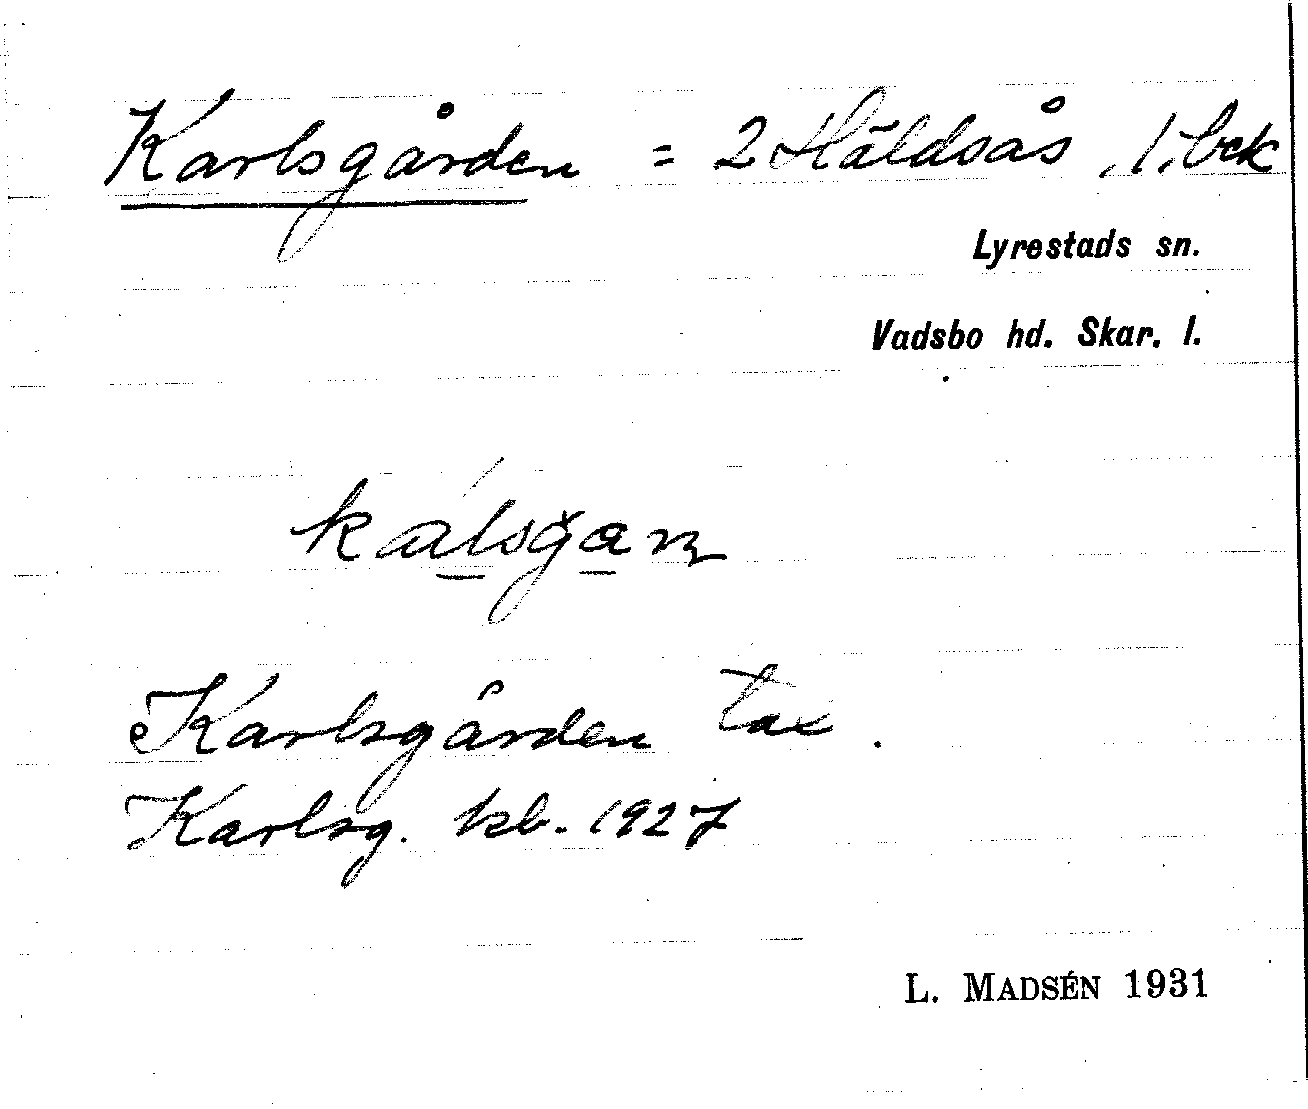 Karlsgården = 2 Häldsås, 1, bck
Lyrestads sn.
Vadsbo hd. Skar. l.
Karlsgården tax.
Karlsg. kb. 1927
L. MADSÉN 1931